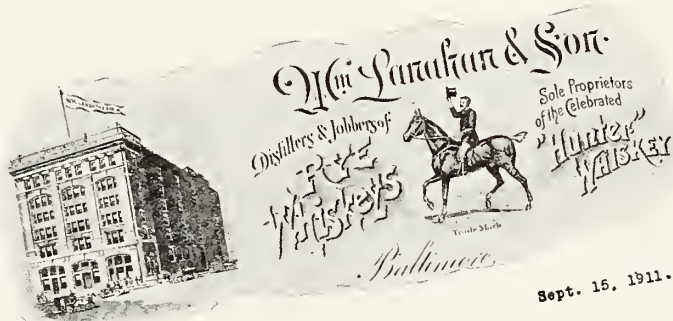 Wm Lanahan & Son.
Distillers & Jobbers of
RYE
Whiskeys
Trade Mark
Sole Proprietors
of the Celebrated
"Hunter"
WHISKEY
Baltimore,
Sept. 15, 1911.